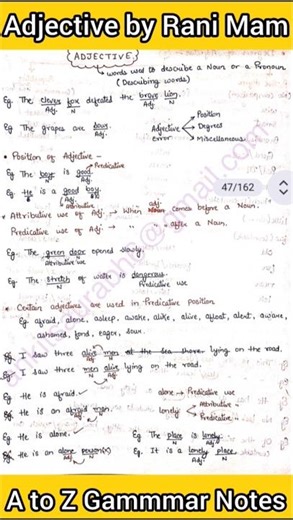 Adjective by Rani Mam
ADJECTIVE
words used to describe a Noun or a Pronoun
(Describing words)
Eg. The clever fox defeated the brave lion.
Adj. N Adj. N
Eg. The grapes are sour.
N Adj.
Adjective Error
Position
Degrees
Miscellaneous
• Position of Adjective -
Predicative
Eg. The boy is good.
N Adj.
Eg. He is a good boy.
Adj. N
attributive
47/162
* Attributive use of Adj. → When adj. Noun comes before a Noun.
Predicative use of Adj. → " " after a Noun.
Eg. The green door opened slowly.
Attributive use
Eg. The stretch of water is dangerous.
N Predicative use
* Certain adjectives are used in Predicative position
Eg. afraid, alone, asleep, awake, alike, alive, afloat, alert, aware,
ashamed, fond, eager, sour.
Eg. I saw three alive men at the sea shore lying on the road.
Adj. N
Eg. I saw three men alive lying on the road.
N Adj.
Eg. He is afraid.
Eg. He is an afraid man.
Adj. N
alone → Predicative use
lonely
Attributive
Predicative
Eg. He is alone.
Eg. He is an alone person(x)
Adj. N
Eg. The place is lonely.
N Adj.
Eg. It is a lonely place.
Adj. N
A to Z Gammmar Notes